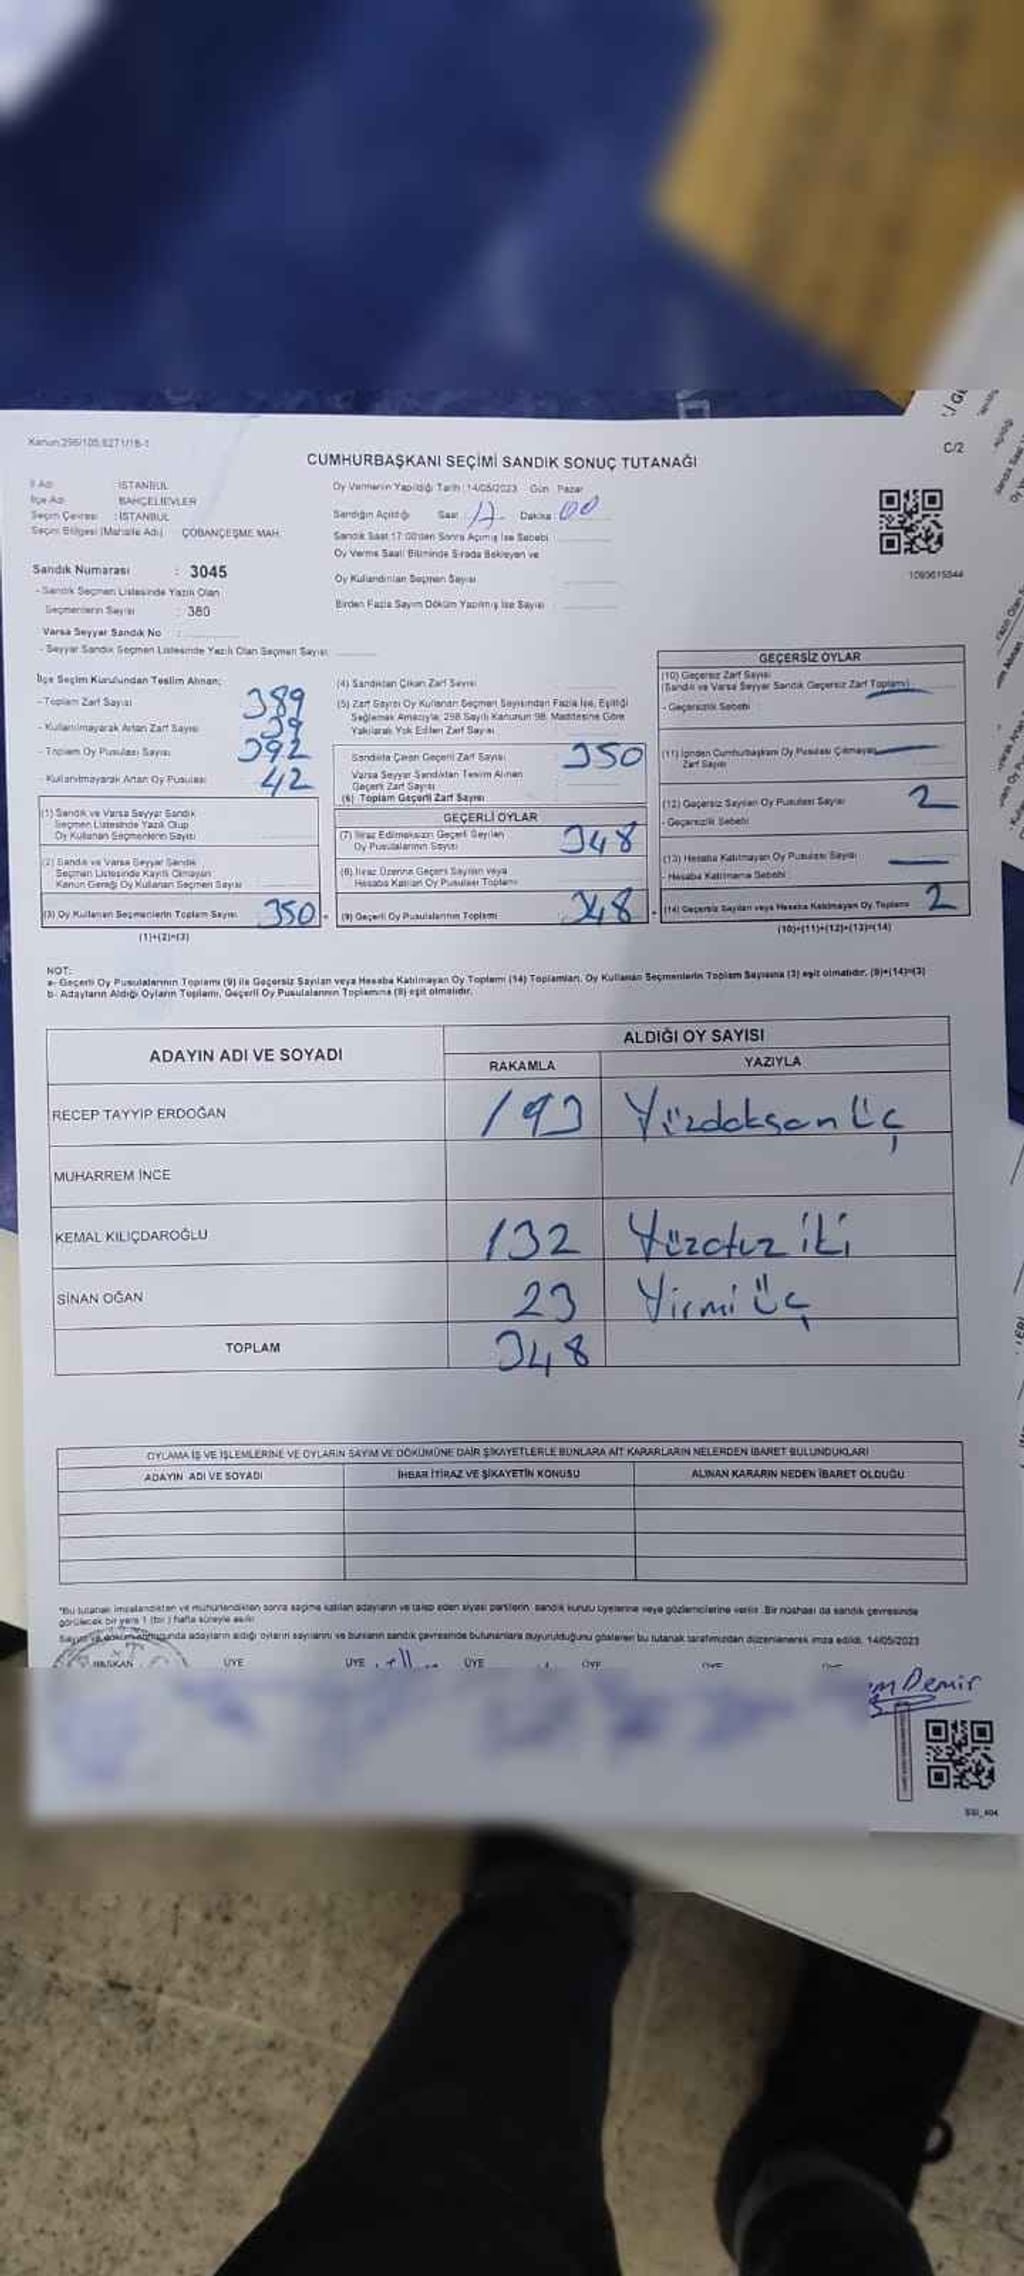 Kanun:298/105,6271/18-1
C/2
CUMHURBAŞKANI SEÇİMİ SANDIK SONUÇ TUTANAĞI
İl Adı : İSTANBUL
İlçe Adı : BAHÇELİEVLER
Seçim Çevresi : İSTANBUL
Seçim Bölgesi (Mahalle Adı) : ÇOBANÇEŞME MAH.
Oy Vermenin Yapıldığı Tarih : 14/05/2023 Gün : Pazar
Sandığın Açıldığı Saat : 17 Dakika : 00
Sandık Saat 17:00'den Sonra Açılmış İse Sebebi
Oy Verme Saati Bitiminde Sırada Bekleyen ve
Oy Kullandırılan Seçmen Sayısı
Birden Fazla Sayım Döküm Yapılmış İse Sayısı
Sandık Numarası : 3045
- Sandık Seçmen Listesinde Yazılı Olan
Seçmenlerin Sayısı : 380
Varsa Seyyar Sandık No :
- Seyyar Sandık Seçmen Listesinde Yazılı Olan Seçmen Sayısı:
İlçe Seçim Kurulundan Teslim Alınan;
- Toplam Zarf Sayısı 389
- Kullanılmayarak Artan Zarf Sayısı 39
- Toplam Oy Pusulası Sayısı 392
- Kullanılmayarak Artan Oy Pusulası 42
(1) Sandık ve Varsa Seyyar Sandık
Seçmen Listesinde Yazılı Olup
Oy Kullanan Seçmenlerin Sayısı
(2) Sandık ve Varsa Seyyar Sandık
Seçmen Listesinde Kayıtlı Olmayan
Kanun Gereği Oy Kullanan Seçmen Sayısı
(3) Oy Kullanan Seçmenlerin Toplam Sayısı 350
(1)+(2)=(3)
(4) Sandıktan Çıkan Zarf Sayısı
(5) Zarf Sayısı Oy Kullanan Seçmen Sayısından Fazla İse, Eşitliği
Sağlamak Amacıyla; 298 Sayılı Kanunun 98. Maddesine Göre
Yakılarak Yok Edilen Zarf Sayısı
Sandıkta Çıkan Geçerli Zarf Sayısı 350
Varsa Seyyar Sandıktan Teslim Alınan
Geçerli Zarf Sayısı
(6) Toplam Geçerli Zarf Sayısı
GEÇERLİ OYLAR
(7) İtiraz Edilmeksizin Geçerli Sayılan
Oy Pusulalarının Sayısı 348
(8) İtiraz Üzerine Geçerli Sayılan veya
Hesaba Katılan Oy Pusulası Toplamı
(9) Geçerli Oy Pusulalarının Toplamı 348
GEÇERSİZ OYLAR
(10) Geçersiz Zarf Sayısı
(Sandık ve Varsa Seyyar Sandık Geçersiz Zarf Toplamı)
- Geçersizlik Sebebi
(11) İçinden Cumhurbaşkanı Oy Pusulası Çıkmayan
Zarf Sayısı
(12) Geçersiz Sayılan Oy Pusulası Sayısı 2
- Geçersizlik Sebebi
(13) Hesaba Katılmayan Oy Pusulası Sayısı
- Hesaba Katılmama Sebebi
(14) Geçersiz Sayılan veya Hesaba Katılmayan Oy Toplamı 2
(10)+(11)+(12)+(13)=(14)
NOT:
a- Geçerli Oy Pusulalarının Toplamı (9) ile Geçersiz Sayılan veya Hesaba Katılmayan Oy Toplamı (14) Toplamları, Oy Kullanan Seçmenlerin Toplam Sayısına (3) eşit olmalıdır. (9)+(14)=(3)
b- Adayların Aldığı Oyların Toplamı, Geçerli Oy Pusulalarının Toplamına (9) eşit olmalıdır.
ADAYIN ADI VE SOYADI
ALDIĞI OY SAYISI
RAKAMLA YAZIYLA
RECEP TAYYİP ERDOĞAN 193 Yüzdoksan üç
MUHARREM İNCE
KEMAL KILIÇDAROĞLU 132 Yüzotuz iki
SİNAN OĞAN 23 Yirmi üç
TOPLAM 348
OYLAMA İŞ VE İŞLEMLERİNE VE OYLARIN SAYIM VE DÖKÜMÜNE DAİR ŞİKAYETLERLE BUNLARA AİT KARARLARIN NELERDEN İBARET BULUNDUKLARI
ADAYIN ADI VE SOYADI İHBAR İTİRAZ VE ŞİKAYETİN KONUSU ALINAN KARARIN NEDEN İBARET OLDUĞU
"Bu tutanak imzalandıktan ve mühürlendikten sonra seçime katılan adayların ve talep eden siyasi partilerin, sandık kurulu üyelerine veya gözlemcilerine verilir. Bir nüshası da sandık çevresinde
görülecek bir yere 1 (bir) hafta süreyle asılır.
adayların aldığı oyların sayılarını ve bunların sandık çevresinde bulunanlara duyurulduğunu gösteren bu tutanak tarafımızdan düzenlenerek imza edildi. 14/05/2023
BAŞKAN ÜYE ÜYE ÜYE
Demir